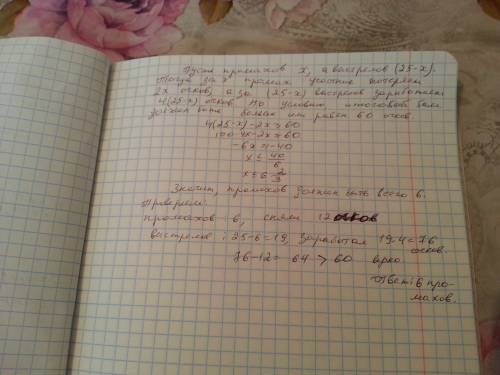 Пусть промахов x, а выстрелов (25-x).
Тогда за x промах. участник потеряет
2x очков, а за (25-x) выстрелов заработает
4(25-x) очков. По условию, итоговый балл
должен быть больше или равен 60 очков.
4(25-x)-2x≥60
100-4x-2x≥60
-6x≥-40
x≤ 40/6
x≤6 2/3
Значит, промахов должно быть всего 6.
Проверяем:
промахов 6, сняли 12 очков
выстрелов: 25-6=19, заработал 19·4=76
очков.
76-12= 64 > 60 верно
Ответ: 6 про-
махов.